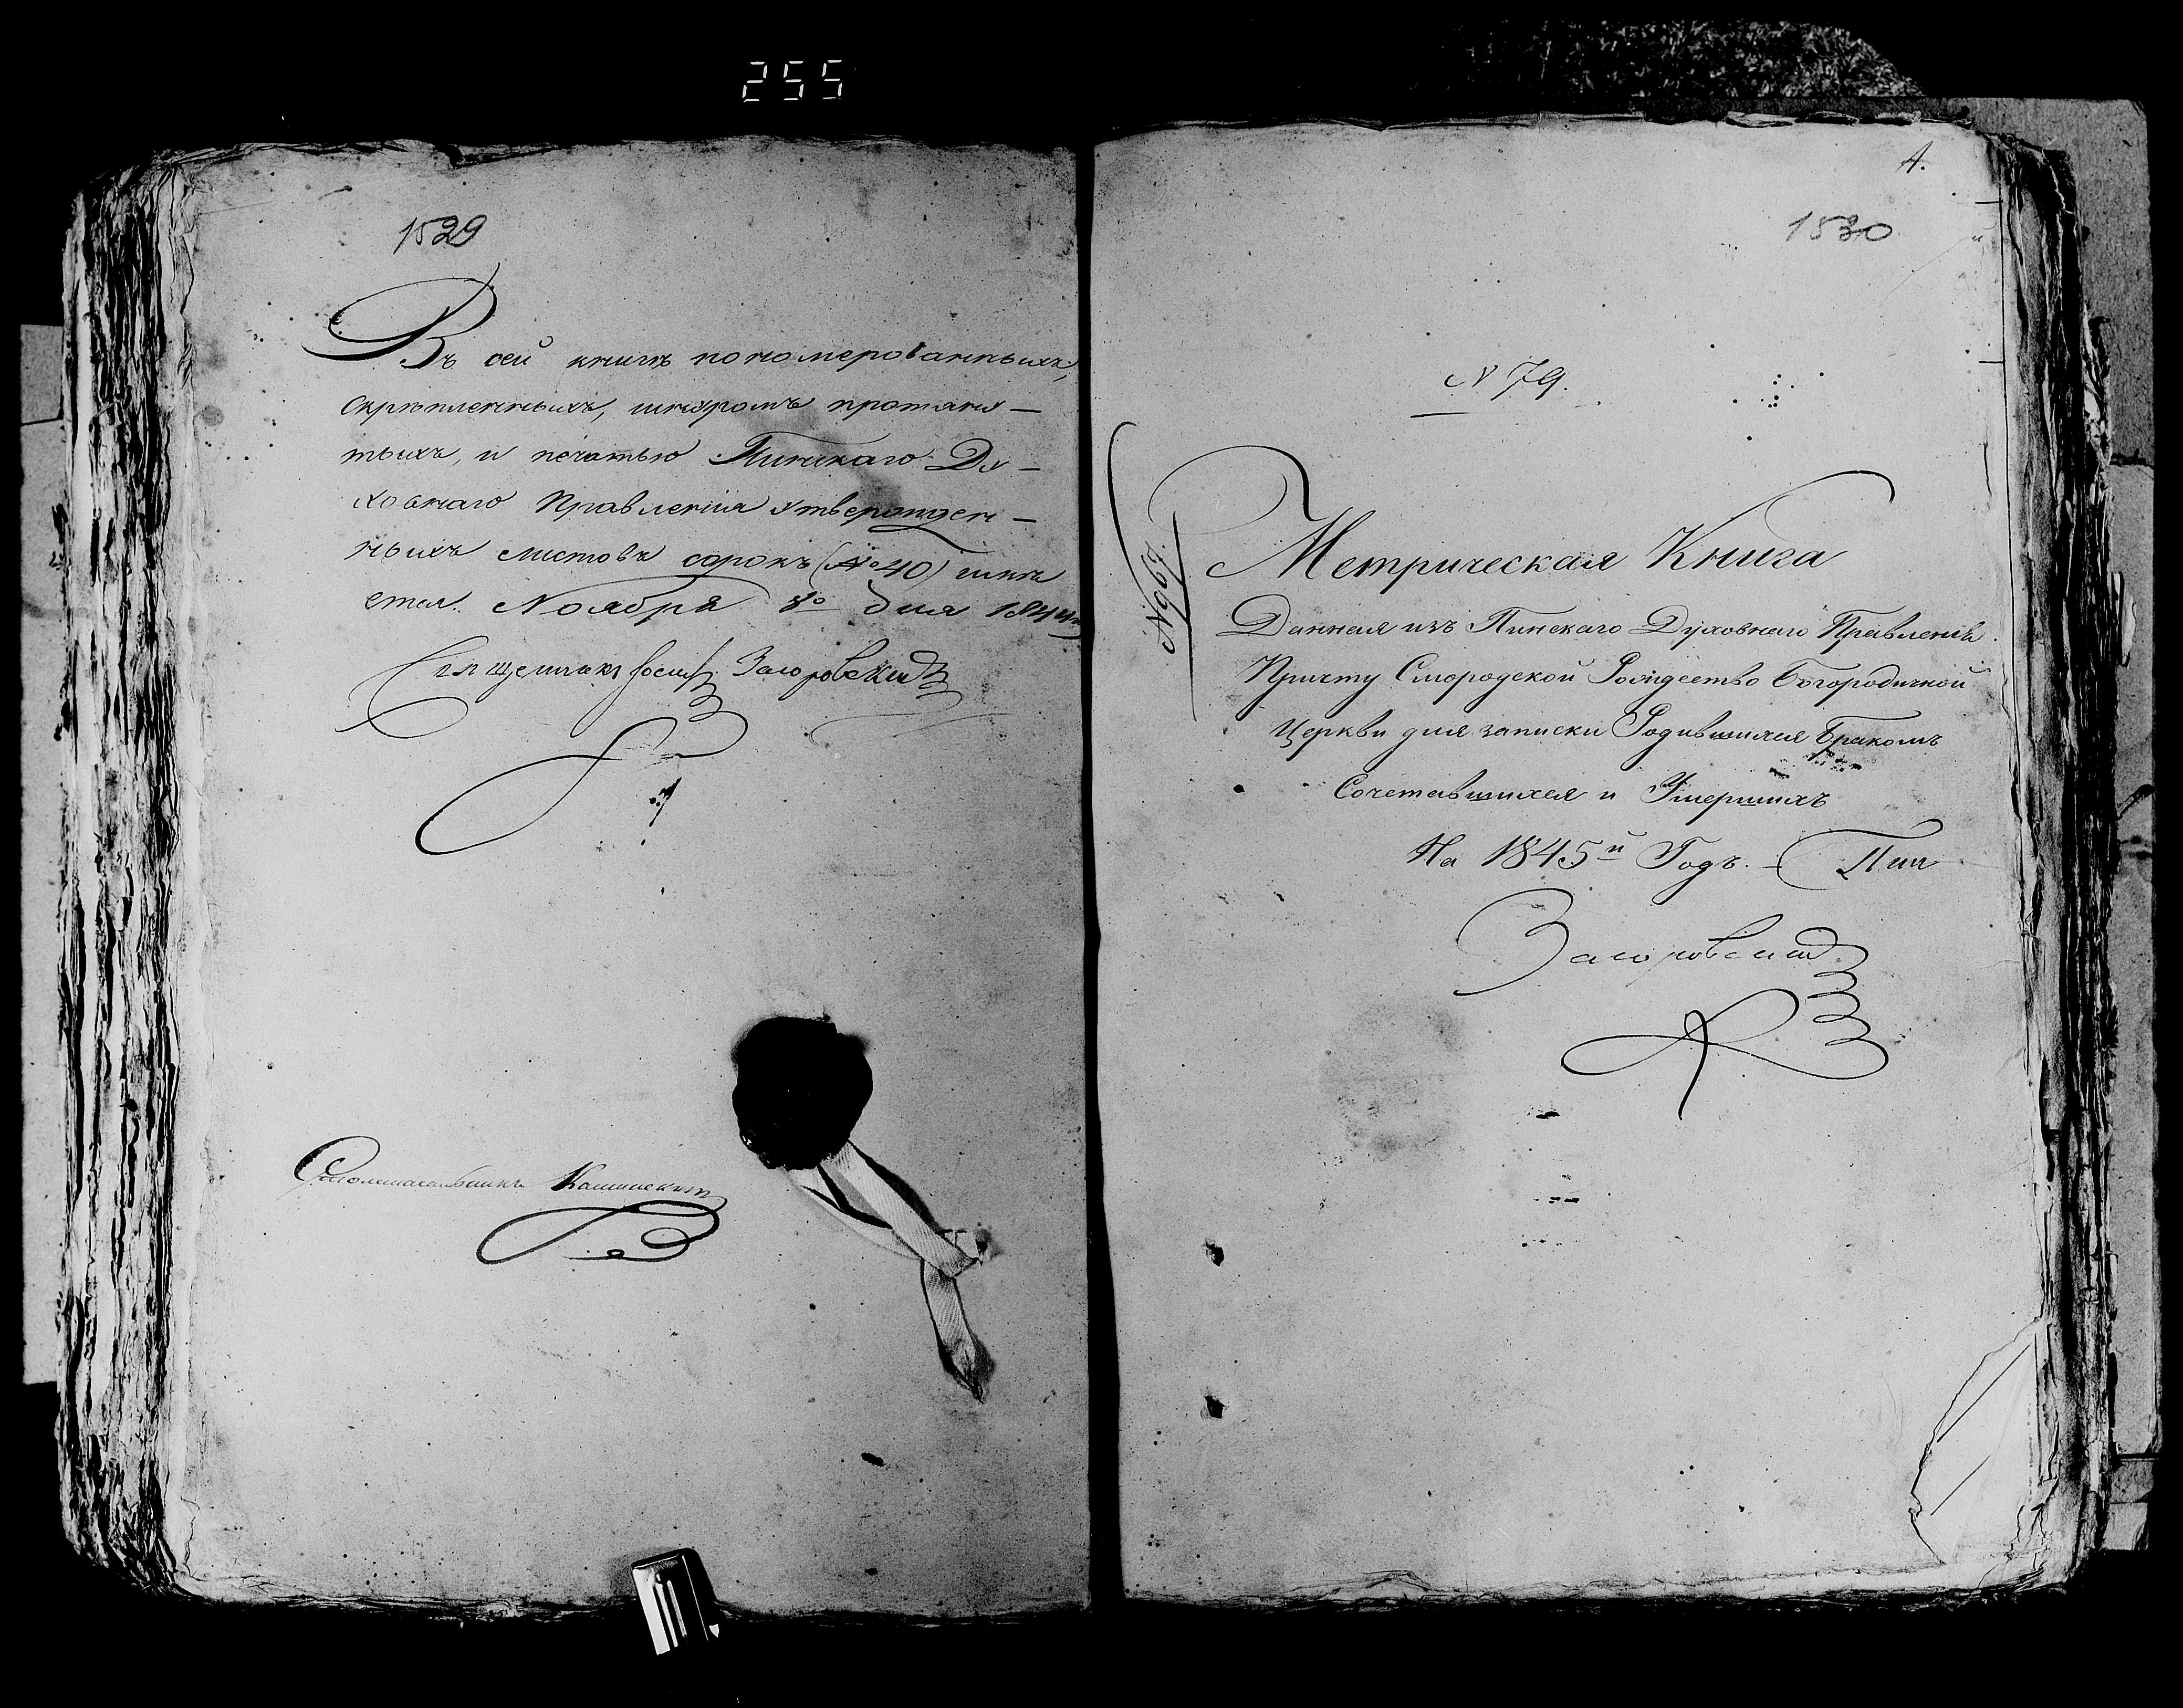 255
1529
Въ сей книгѣ пономерованныхъ,
скрѣпленныхъ, шнуромъ протяну-
тыхъ, и печатью Пинскаго Ду-
ховнаго Правленія утвержден-
ныхъ листовъ сорокъ (№ 40) имѣ
ется. Ноября 8о дня 1844
Священникъ Іосифъ Загоровскій
Столоначальникъ
1530
N 79.
№ 969.
Метрическая Книга
Данная изъ Пинскаго Духовнаго Правленія
Причту Смородской Рождество Богородичной
Церкви для записки Родившихся Бракомъ
Сочетавшихся и Умершихъ
На 1845й Годъ.
Загоровскій